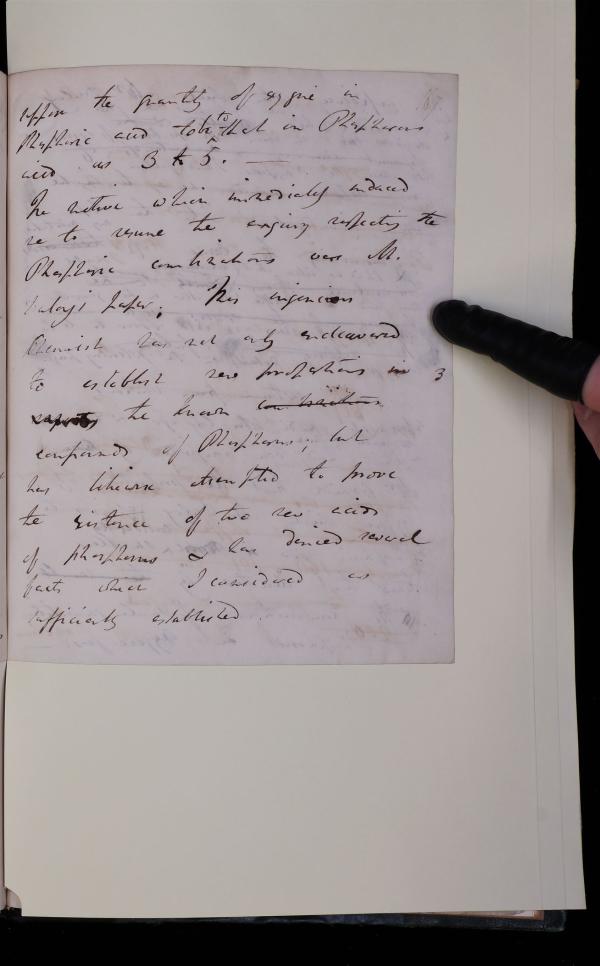 suppose the quantity of oxygene in 167.
Phosphoric acid to be to that in Phosphorous
acid as 3 to 5. —
The motive which immediately induced
me to resume the enquiry respecting the
Phosphoric combinations was M.
Dulong's paper; This ingenious
Chemist has not only endeavoured
to establish new proportions in 3
the known combinations
compounds of Phosphorus; but
has likewise attempted to prove
the existence of two new acids
of phosphorus & has denied several
facts which I considered as
sufficiently established